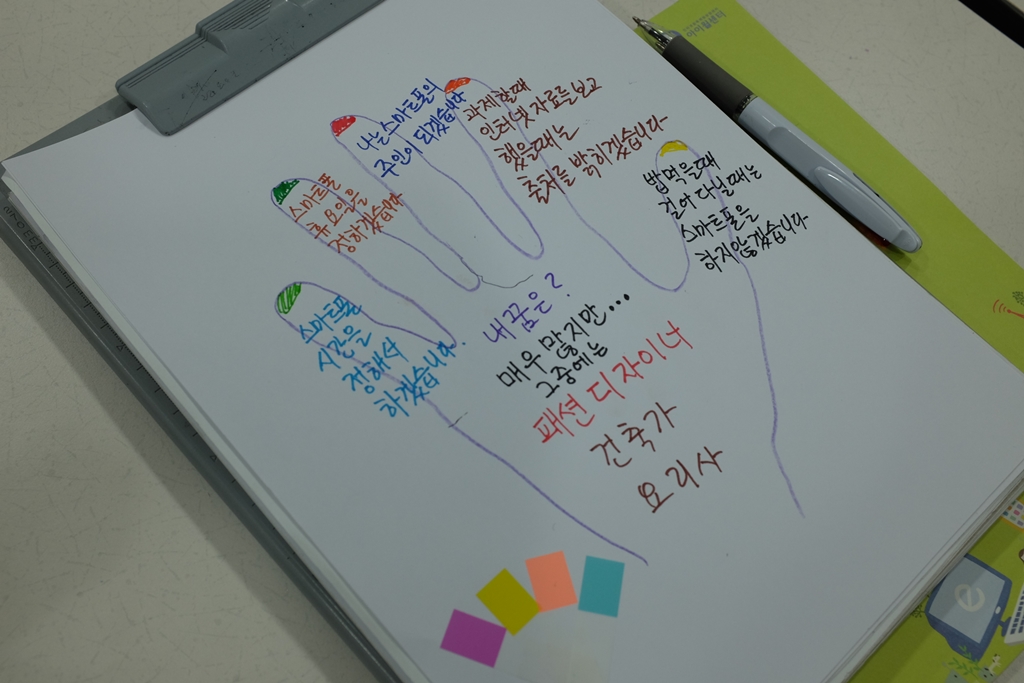 스마트폰
시간을
정해서
하겠습니다.
스마트폰
휴요일을
정하겠습니다
나는 스마트폰의
주인이 되겠습니다
과제할때
인터넷 자료를 보고
했을때는
출처를 밝히겠습니다
밥먹을때
걸어 다닐때는
스마트폰을
하지않겠습니다
내 꿈은?
매우 많지만...
그중에는
패션 디자이너
건축가
요리사
e